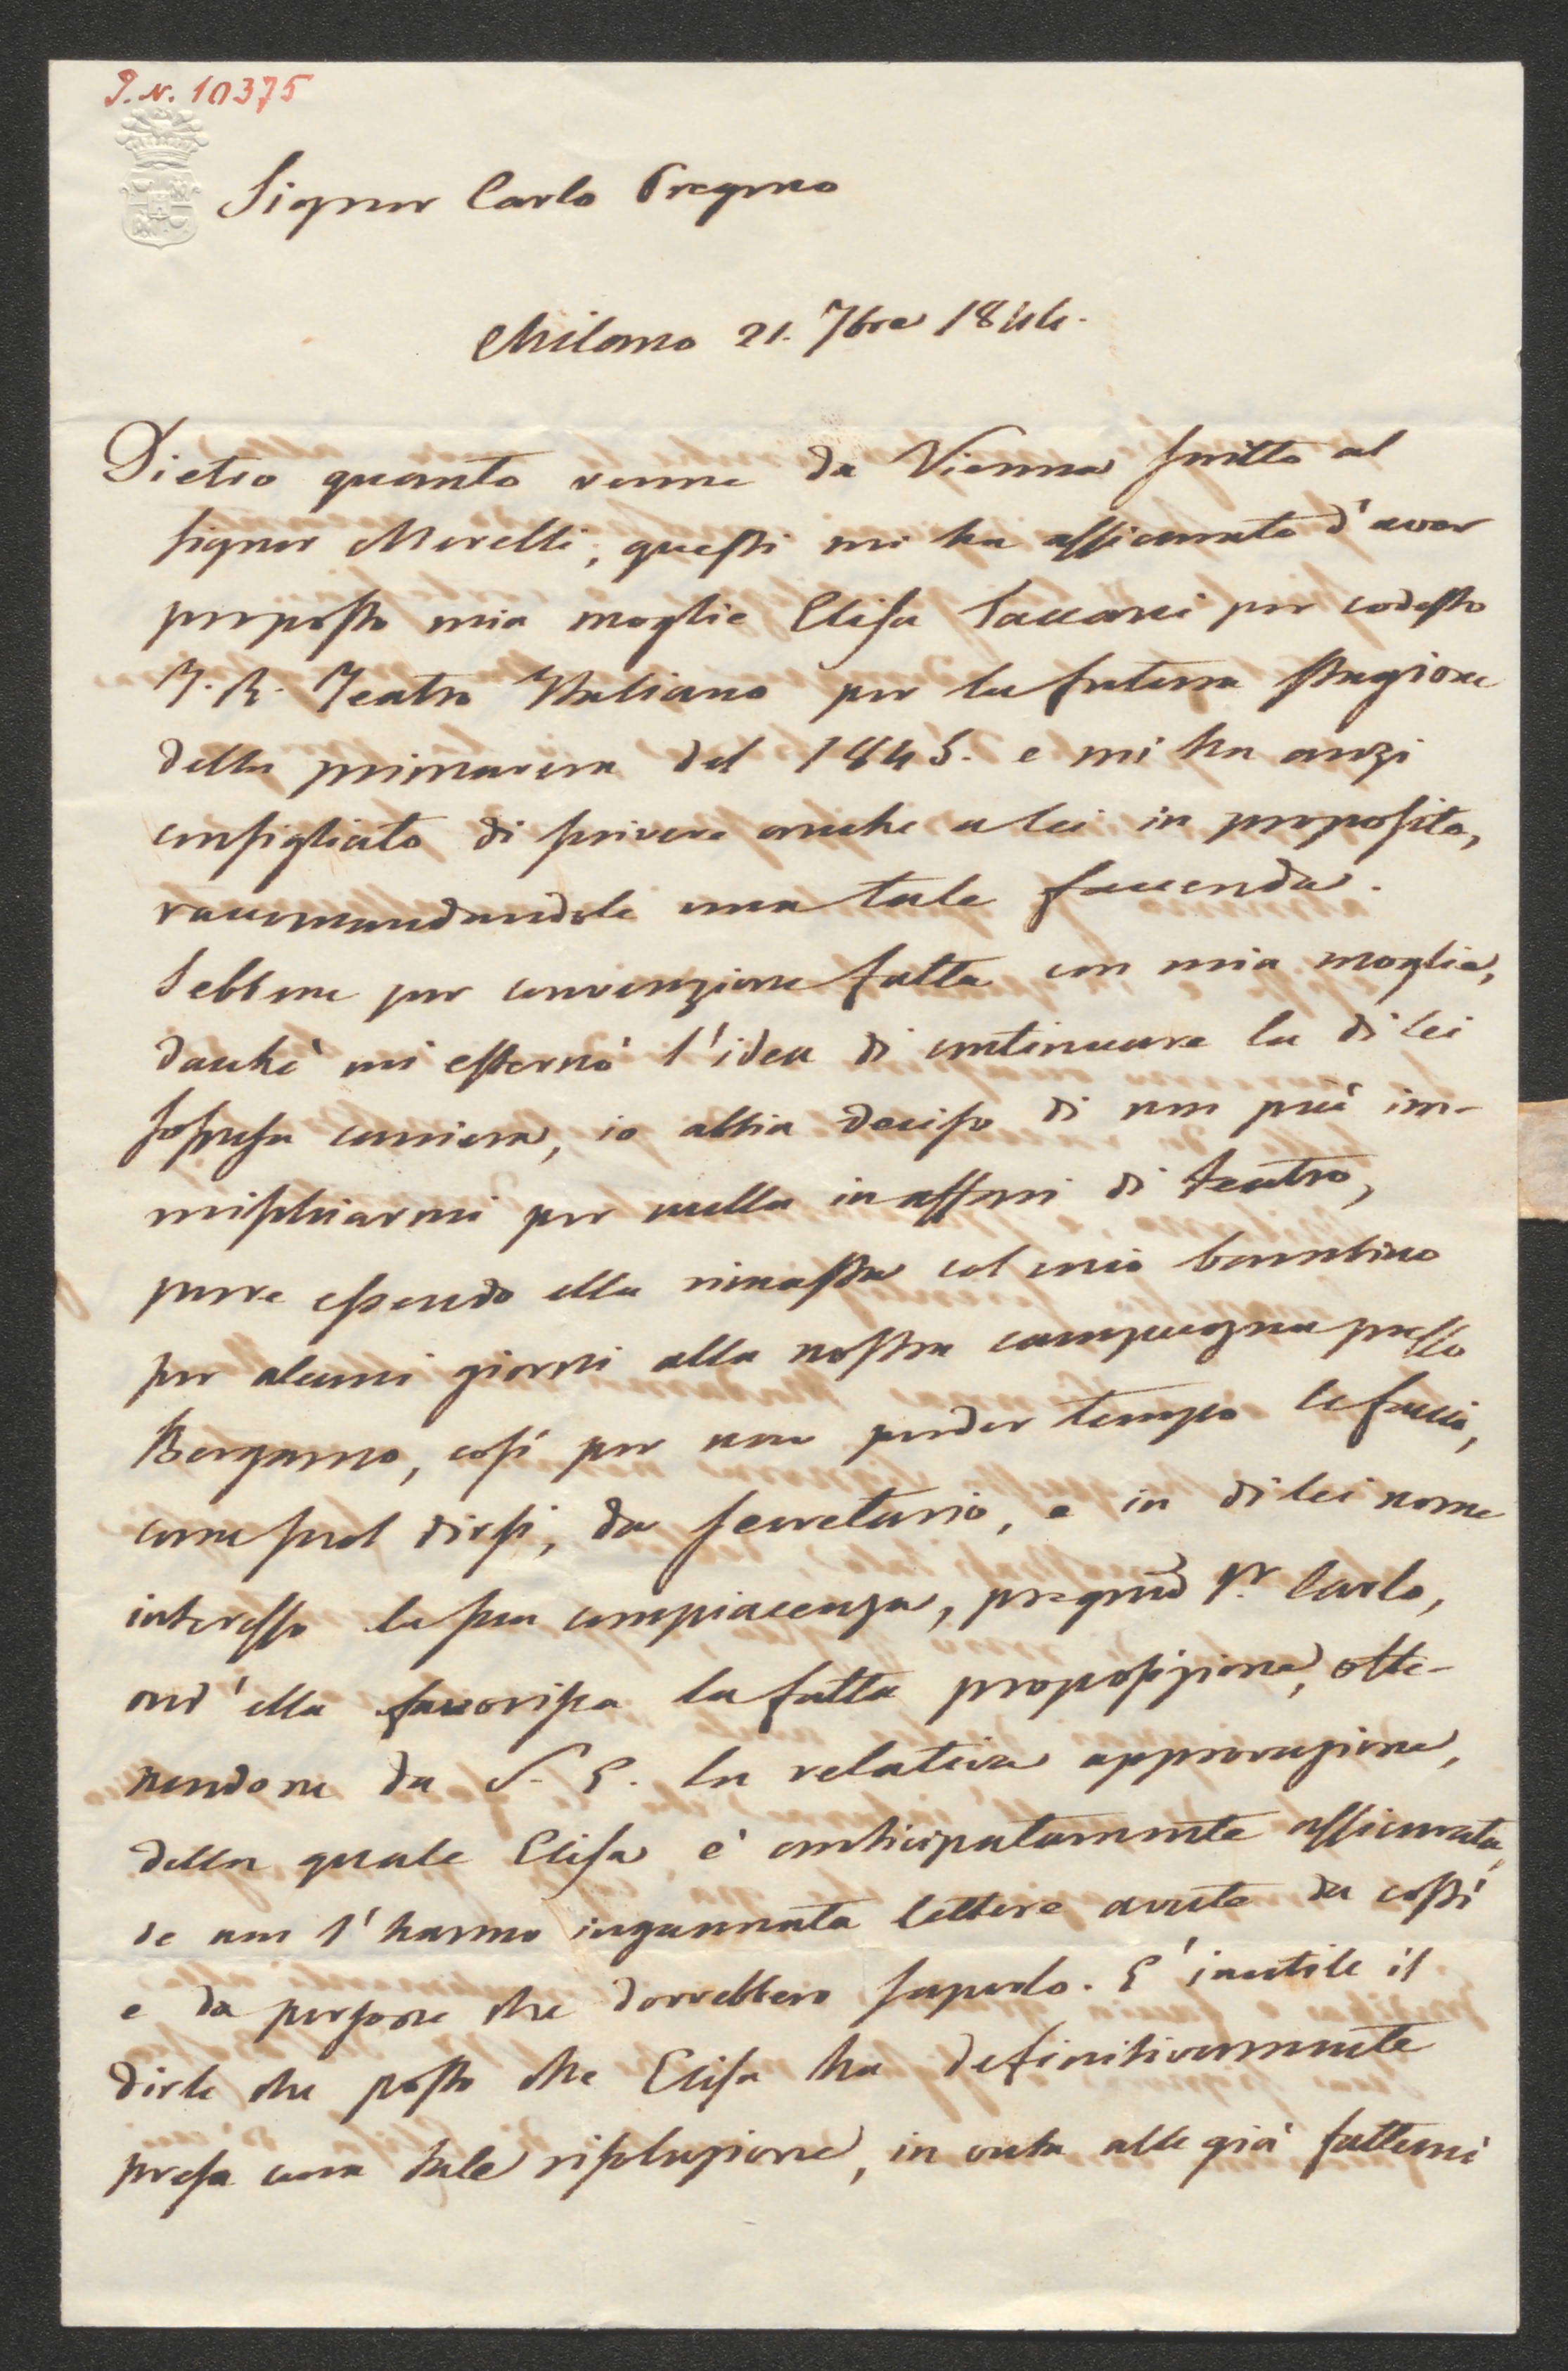 I.N. 10375
Signor Carlo Pregmo
Milano 21. 7bre 1844.
Dietro quanto venne da Vienna scritto al
signor Merelli, questi mi ha assicurato d'aver
proposto mia moglie Elisa Taccani per codesto
I. R. Teatro Italiano per la futura stagione
della primavera del 1845. e mi ha anzi
consigliato di scrivere anche a lei in proposito,
raccomandandole una tale faccenda.
Sebbene per convenzione fatta con mia moglie,
dacchè mi esternò l'idea di continuare la di lei
sospesa carriera, io abbia deciso di non più im-
mischiarmi per nulla in affari di teatro,
pure essendo ella rimasta col mio bambino
per alcuni giorni alla nostra campagna presso
Bergamo, così per non perder tempo le faccio,
come suol dirsi, da secretario, e in di lei nome
interesso la sua compiacenza, pregmo Sr. Carlo,
ond'ella favorisca la fatta proposizione, otte-
nendone da S. E. la relativa approvazione,
della quale Elisa è anticipatamente assicurata,
se non l'hanno ingannata lettere avute da costì
e da persone che dovrebbero saperlo. E' inutile il
dirle che posto che Elisa ha definitivamente
presa una tale risoluzione, in onta alle già fattemi